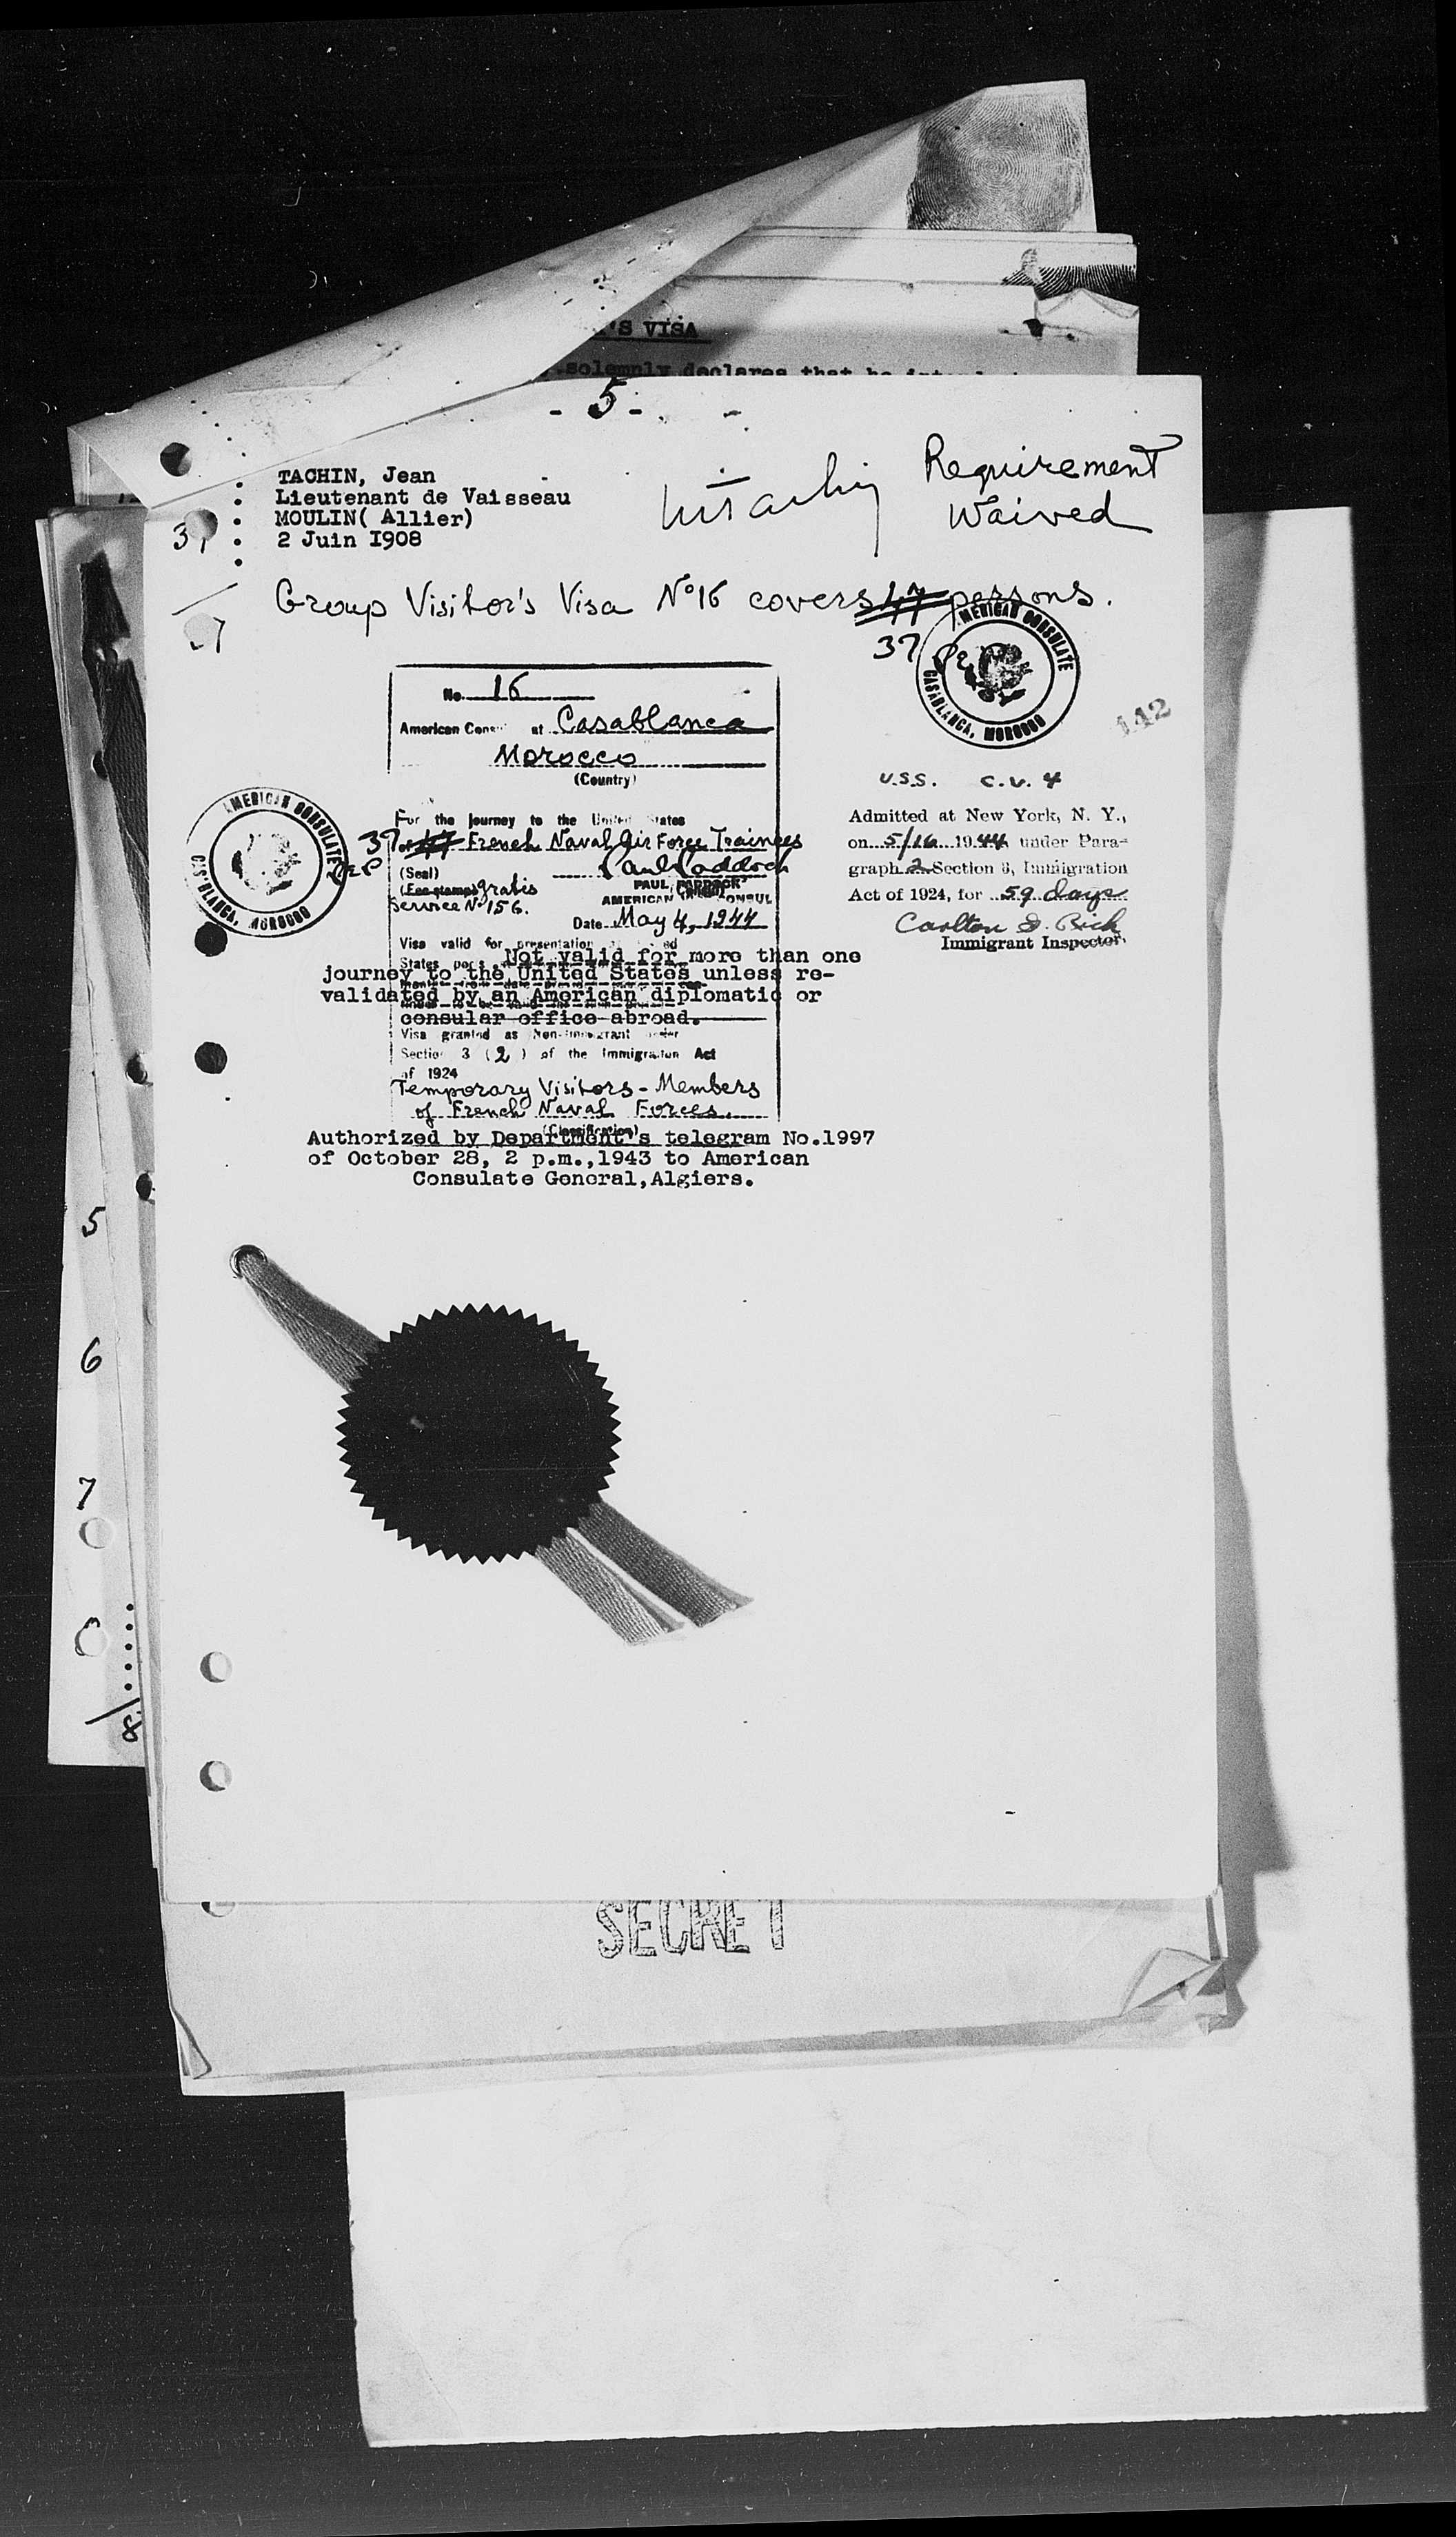 'S VISA
solemnly declares that he
- 5 -
TACHIN, Jean
Lieutenant de Vaisseau
MOULIN( Allier)
2 Juin I908
Requirement
Waived
37
Group Visitor's Visa Nº16 covers 47 persons.
37
AMERICAN CONSULATE
CASABLANCA, MOROCCO
142
No. 16
American Consul at Casablanca
Morocco
(Country)
U.S.S. C.V. 4
Admitted at New York, N. Y.,
on 5/16 1944 under Para-
graph 2 Section 3, Immigration
Act of 1924, for 59 days
Carlton
Immigrant Inspector
AMERICAN CONSULATE
CASABLANCA, MOROCCO
For the journey to the United States
37
of 47 French Naval Air Force Trainees
(Seal) Paul Paddock
(Fee stamp) gratis PAUL PADDOCK
Service Nº 156. AMERICAN CONSUL
Date May 4, 1944
Visa valid for presentation
States ports Not valid for more than one
journey to the United States unless re-
validated by an American diplomatic or
consular office abroad.
Visa granted as Non-immigrant under
Section 3 (2) of the Immigration Act
of 1924
Temporary Visitors - Members
of French Naval Forces.
(Classification)
Authorized by Department's telegram No.1997
of October 28, 2 p.m.,1943 to American
Consulate General,Algiers.
5
6
7
8
SECRET